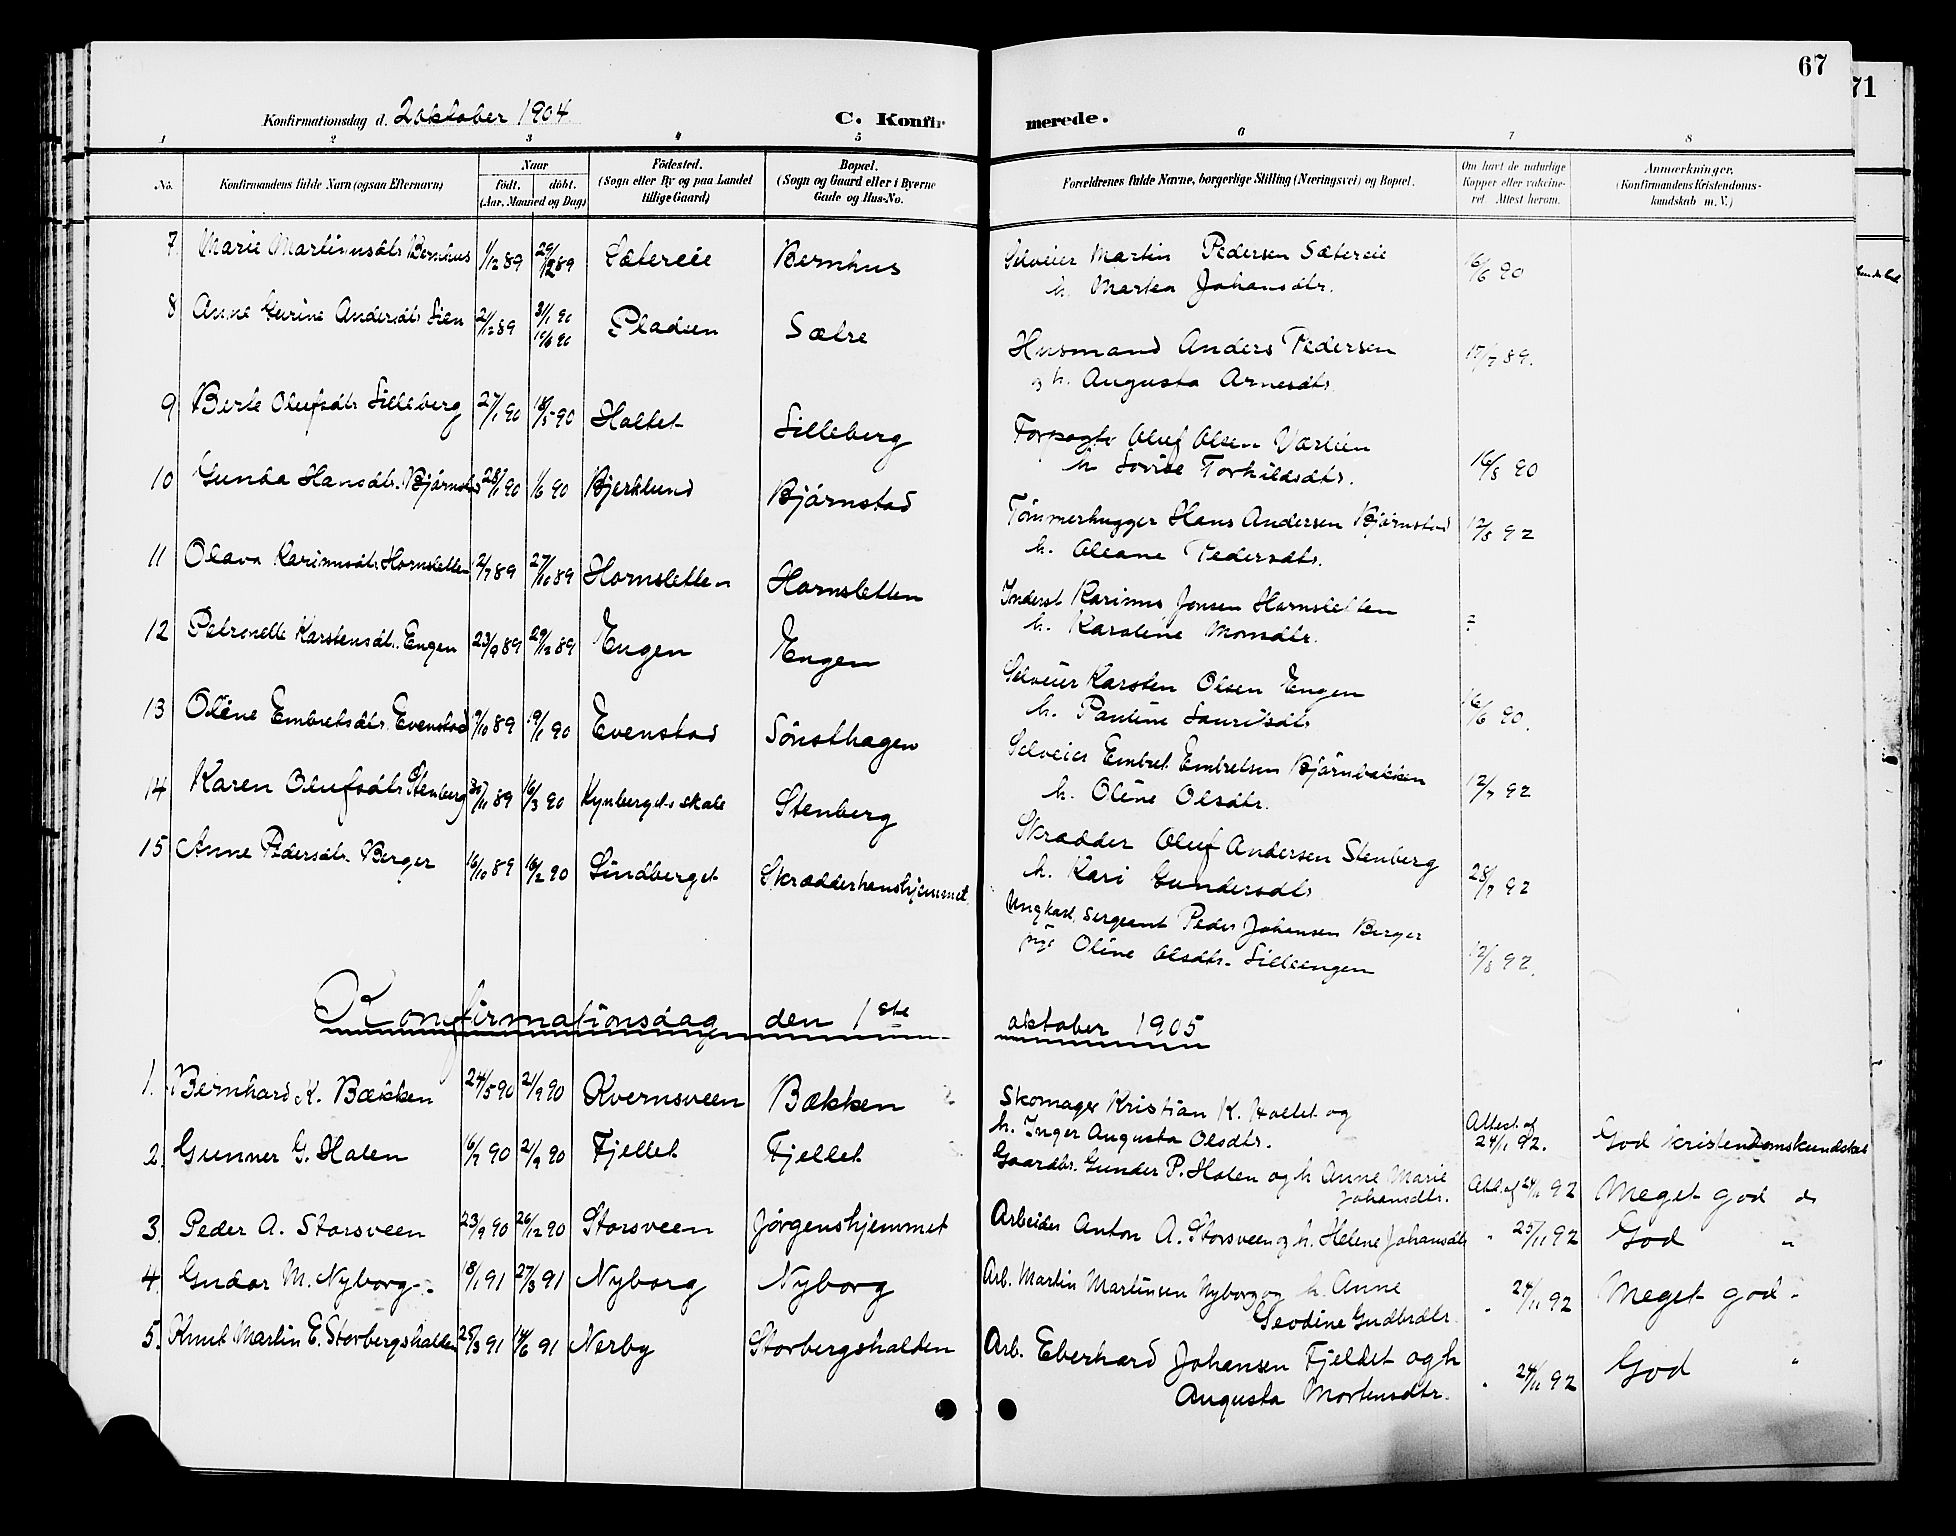 67
71
Konfirmationsdag d. 2 oktober 1904.
C. Konfirmerede.
1 2 3 4 5 6 7 8
No. Konfirmandens fulde Navn (ogsaa Efternavn) Naar födt. döbt. (Aar, Maaned og Dag) Födested. (Sogn eller By og paa Landet tillige Gaard) Bopæl. (Sogn og Gaard eller i Byerne Gade og Hus-No. Forældrenes fulde Navne, borgerlige Stilling (Næringsvei) og Bopæl. Om havt de naturlige Kopper eller vakcineret. Attest herom. Anmærkninger. (Konfirmandens Kristendomskundskab m. V.)
7 Marie Martinusdtr. Bernhus 1/12 89 29/12 89 Sætereie Bernhus Selveier Martin Pedersen Sætereie 16/6 90
h. Martea Johansdtr.
8 Anne Gurine Andersdtr. Lien 21/12 89 31/1 90 Pladsen Sætre Husmand Anders Pedersen 17/7 89.
og h. Augusta Arnesdtr.
9 Berte Olufsdtr. Lilleberg 27/1 90 18/5 90 Holtet Lilleberg Forpagtr. Oluf Olsen Værlien 16/8 90
h. Lovise Torkildsdtr.
10 Gunda Hansdtr. Bjørnstad 28/1 90 1/6 90 Bjerklund Bjørnstad Tømmerhugger Hans Andersen Bjørnstad 12/8 92
h. Oleane Pedersdtr.
11 Olava Karinusdtr. Hornsletten 2/7 89 27/10 89 Hornsletten Hornsletten Inderst Karinus Jonsen Hornsletten ?
h. Karoline Monsdtr.
12 Petronelle Karstensdtr. Engen 23/9 89 29/12 89 Engen Engen Selveier Karsten Olsen Engen 16/6 90.
h. Pauline Lauritsdtr.
13 Oline Embretsdtr. Evenstad 9/10 89 19/1 90 Evenstad Sønsthagen Selveier Embret Embretsen Bjørnbakken 12/7 92
h. Oline Olsdtr.
14 Karen Olufsdtr. Stenberg 30/11 89 16/3 90 Kynbergets skole Stenberg Skrædder Oluf Andersen Stenberg 28/7 92
h. Kari Gundersdtr.
15 Anne Pedersdtr. Berger 16/10 89 16/2 90 Lindberget Skrædderhanshjemmet Ungkarl, sergeant Peder Johansen Berger 12/8 92.
pige Oline Olsdtr. Lilleengen
Konfirmationsdag den 1ste oktober 1905
1. Bernhard K. Bækken 24/5 90 21/9 90 Kvernsveen Bækken Skomager Kristian K. Holtet og Attest af 24/11 92. God kristendomskundskab
h. Inger Augusta Olsdtr.
2. Gunner G. Halen 16/7 90 21/9 90 Fjellet Fjellet Gaardbr. Gunder P. Halen og h. Anne Marie Johansdtr. Att. af 24/11 92 Meget god do
3. Peder A. Storsveen 23/9 90 26/12 90 Storsveen Jørgenshjemmet Arbeider Anton A. Storsveen og h. Helene Johansdtr. " 25/11 92 God "
4. Gudar M. Nyborg 18/1 91 27/3 91 Nyborg Nyborg Arb. Martin Martinsen Nyborg og h. Anne " 24/11 92 Meget god "
Gevdine Gudbrdtr.
5. Knut Martin E. Storbergshalden 25/3 91 14/6 91 Nerby Storbergshalden Arb. Eberhard Johansen Fjeldet og h " 24/11 92 God "
Augusta Mortensdtr.